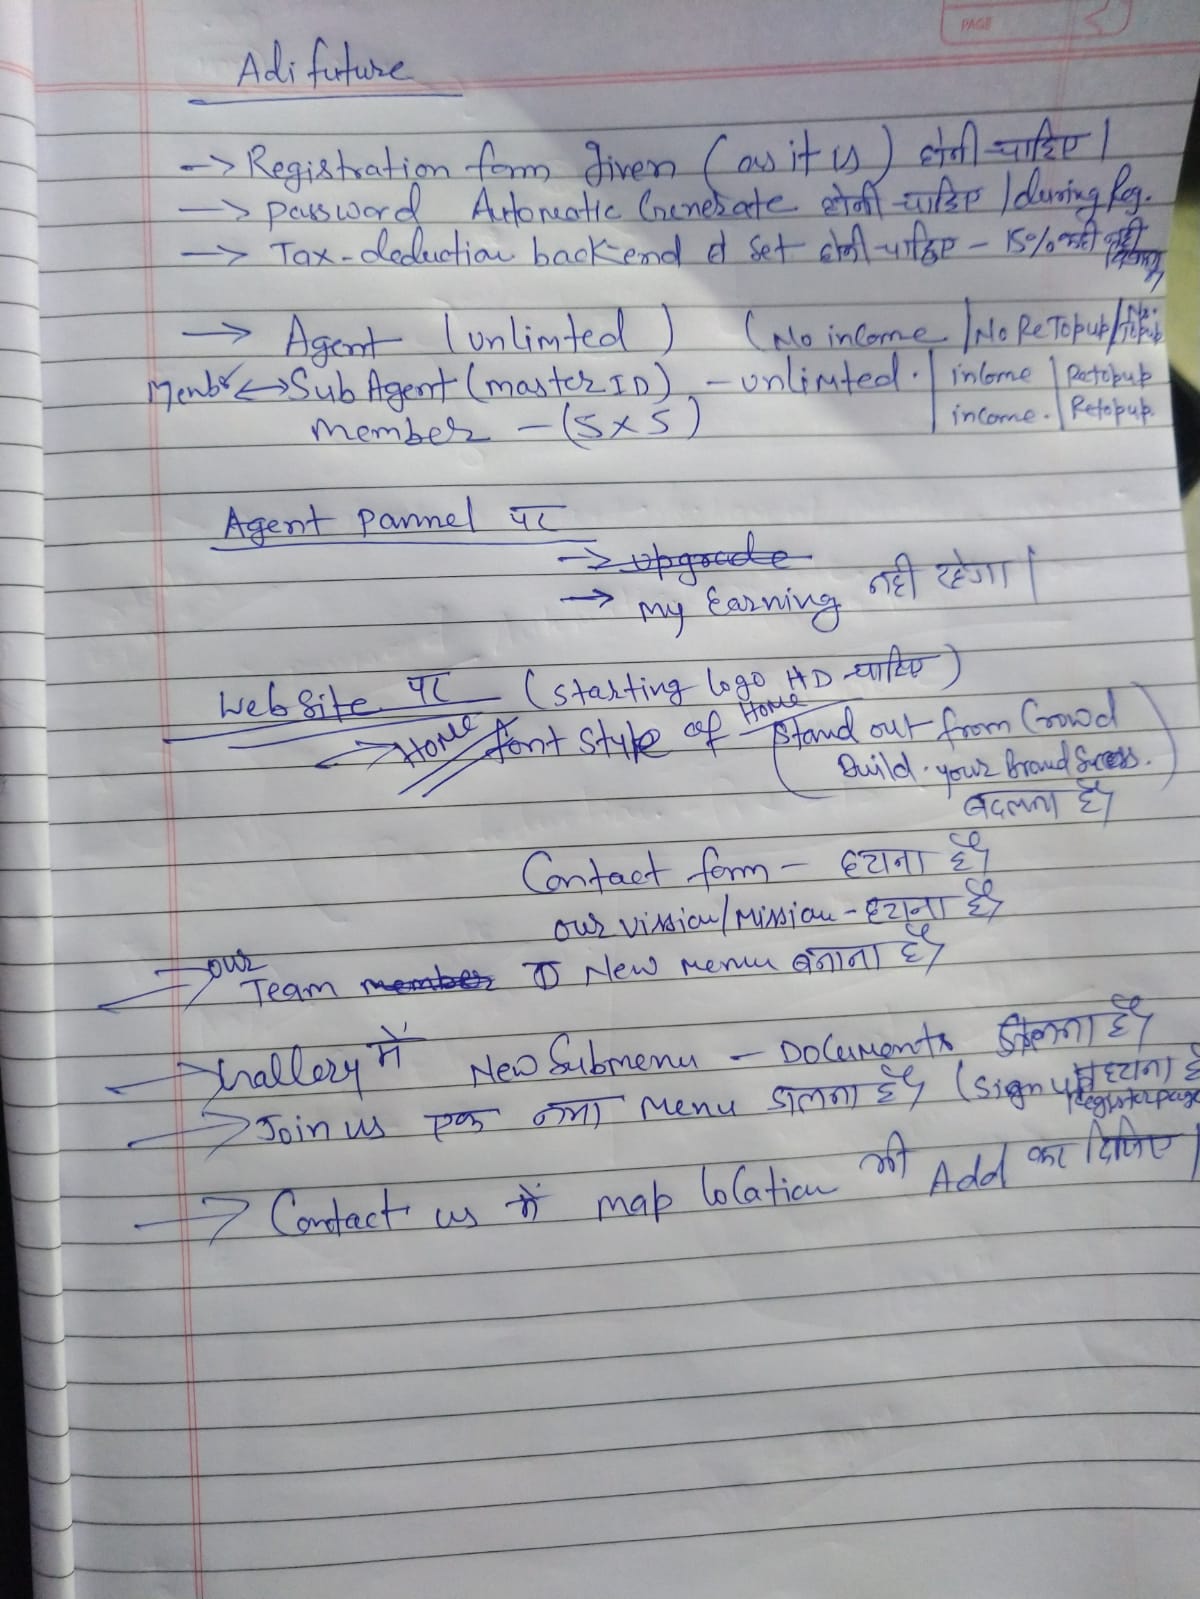 PAGE
Adi future
-> Registration form given (as it is) होनी चाहिए।
-> Password Automatic Generate होनी चाहिए / during Reg.
-> Tax-deduction backend से set होनी चाहिए - 15% कही नही
-> Agent (unlimted) (No income / No ReTopup /
Member <-> Sub Agent (master ID) - unlimted. | income | Retopup
member - (5x5) | income. | Retopup.
Agent Pannel पर
-> upgrade
-> My Earning नही रहेगा।
Web Site पर (starting logo HD चाहिए)
-> HOME font style of Home (Stand out from Crowd
Build your Brand Sucess.)
बदलना है
Contact form - हटाना है
our vission/Mission - हटाना है
-> our Team member का New menu बनाना है
-> Gallery में New Submenu - Documents डालना है
-> Join us एक नया Menu डालना है (Sign up हटाना है
Register page
-> Contact us में map location भी Add कर दिजिए।